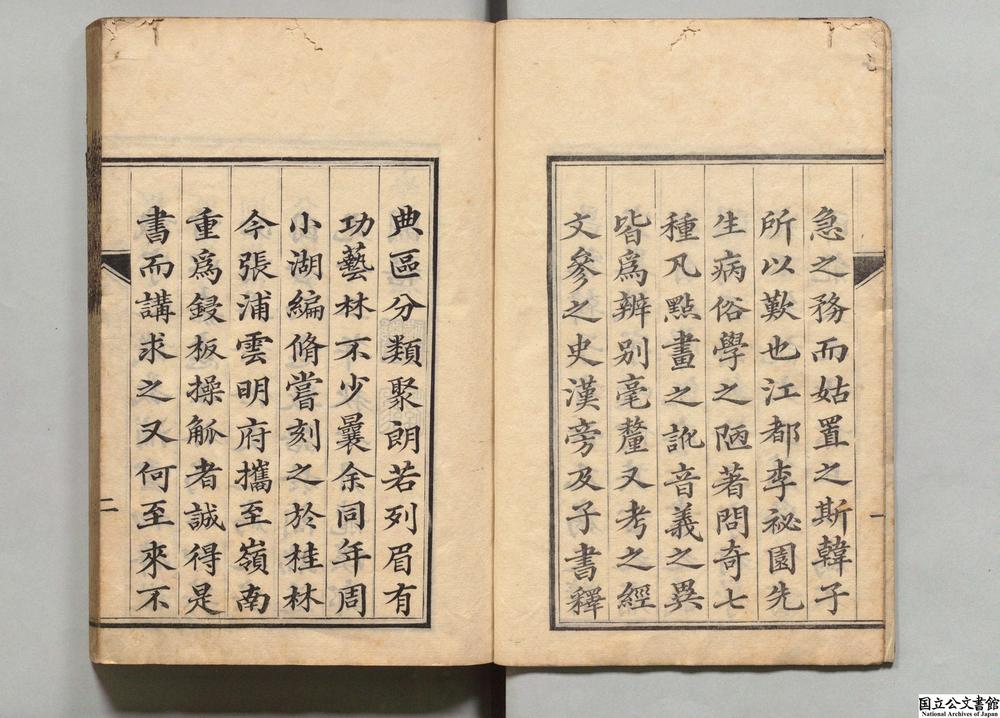 急之務而姑置之斯韓子
所以歎也江都李祕園先
生病俗學之陋著問奇七
種凡點畫之訛音義之異
皆爲辨别毫釐又考之經
文參之史漢旁及子書釋
一
典區分類聚朗若列眉有
功藝林不少曩余同年周
小湖編脩嘗刻之於桂林
今張浦雲明府攜至嶺南
重爲鋟板操觚者誠得是
書而講求之又何至來不
二
国立公文書館
National Archives of Japan